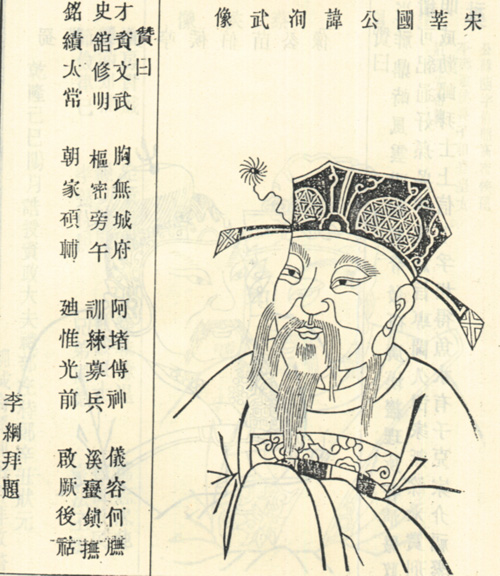 宋莘國公諱洵武像
贊曰
才資文武　胸無城府　阿堵傳神　儀容何膴
史舘修明　樞密旁午　訓練募兵　溪蠻鎮撫
銘績太常　朝家碩輔　廸惟光前　啟厥後祜
李綱拜題